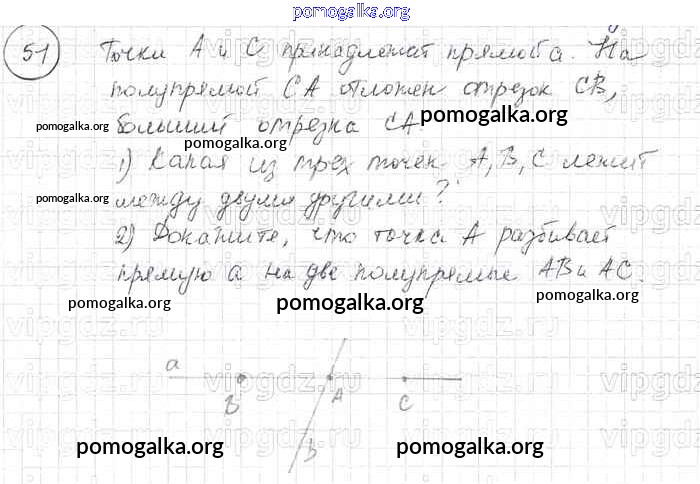 pomogalka.org
51 Точки A и C принадлежат прямой a. На
полупрямой CA отложен отрезок CB,
pomogalka.org
pomogalka.org
больший отрезка CA.
pomogalka.org
1) Какая из трех точек A, B, C лежит
pomogalka.org
между двумя другими?
2) Докажите, что точка A разбивает
прямую a на две полупрямые AB и AC.
pomogalka.org pomogalka.org pomogalka.org
a
B A C
b
pomogalka.org pomogalka.org
vipgdz.ru